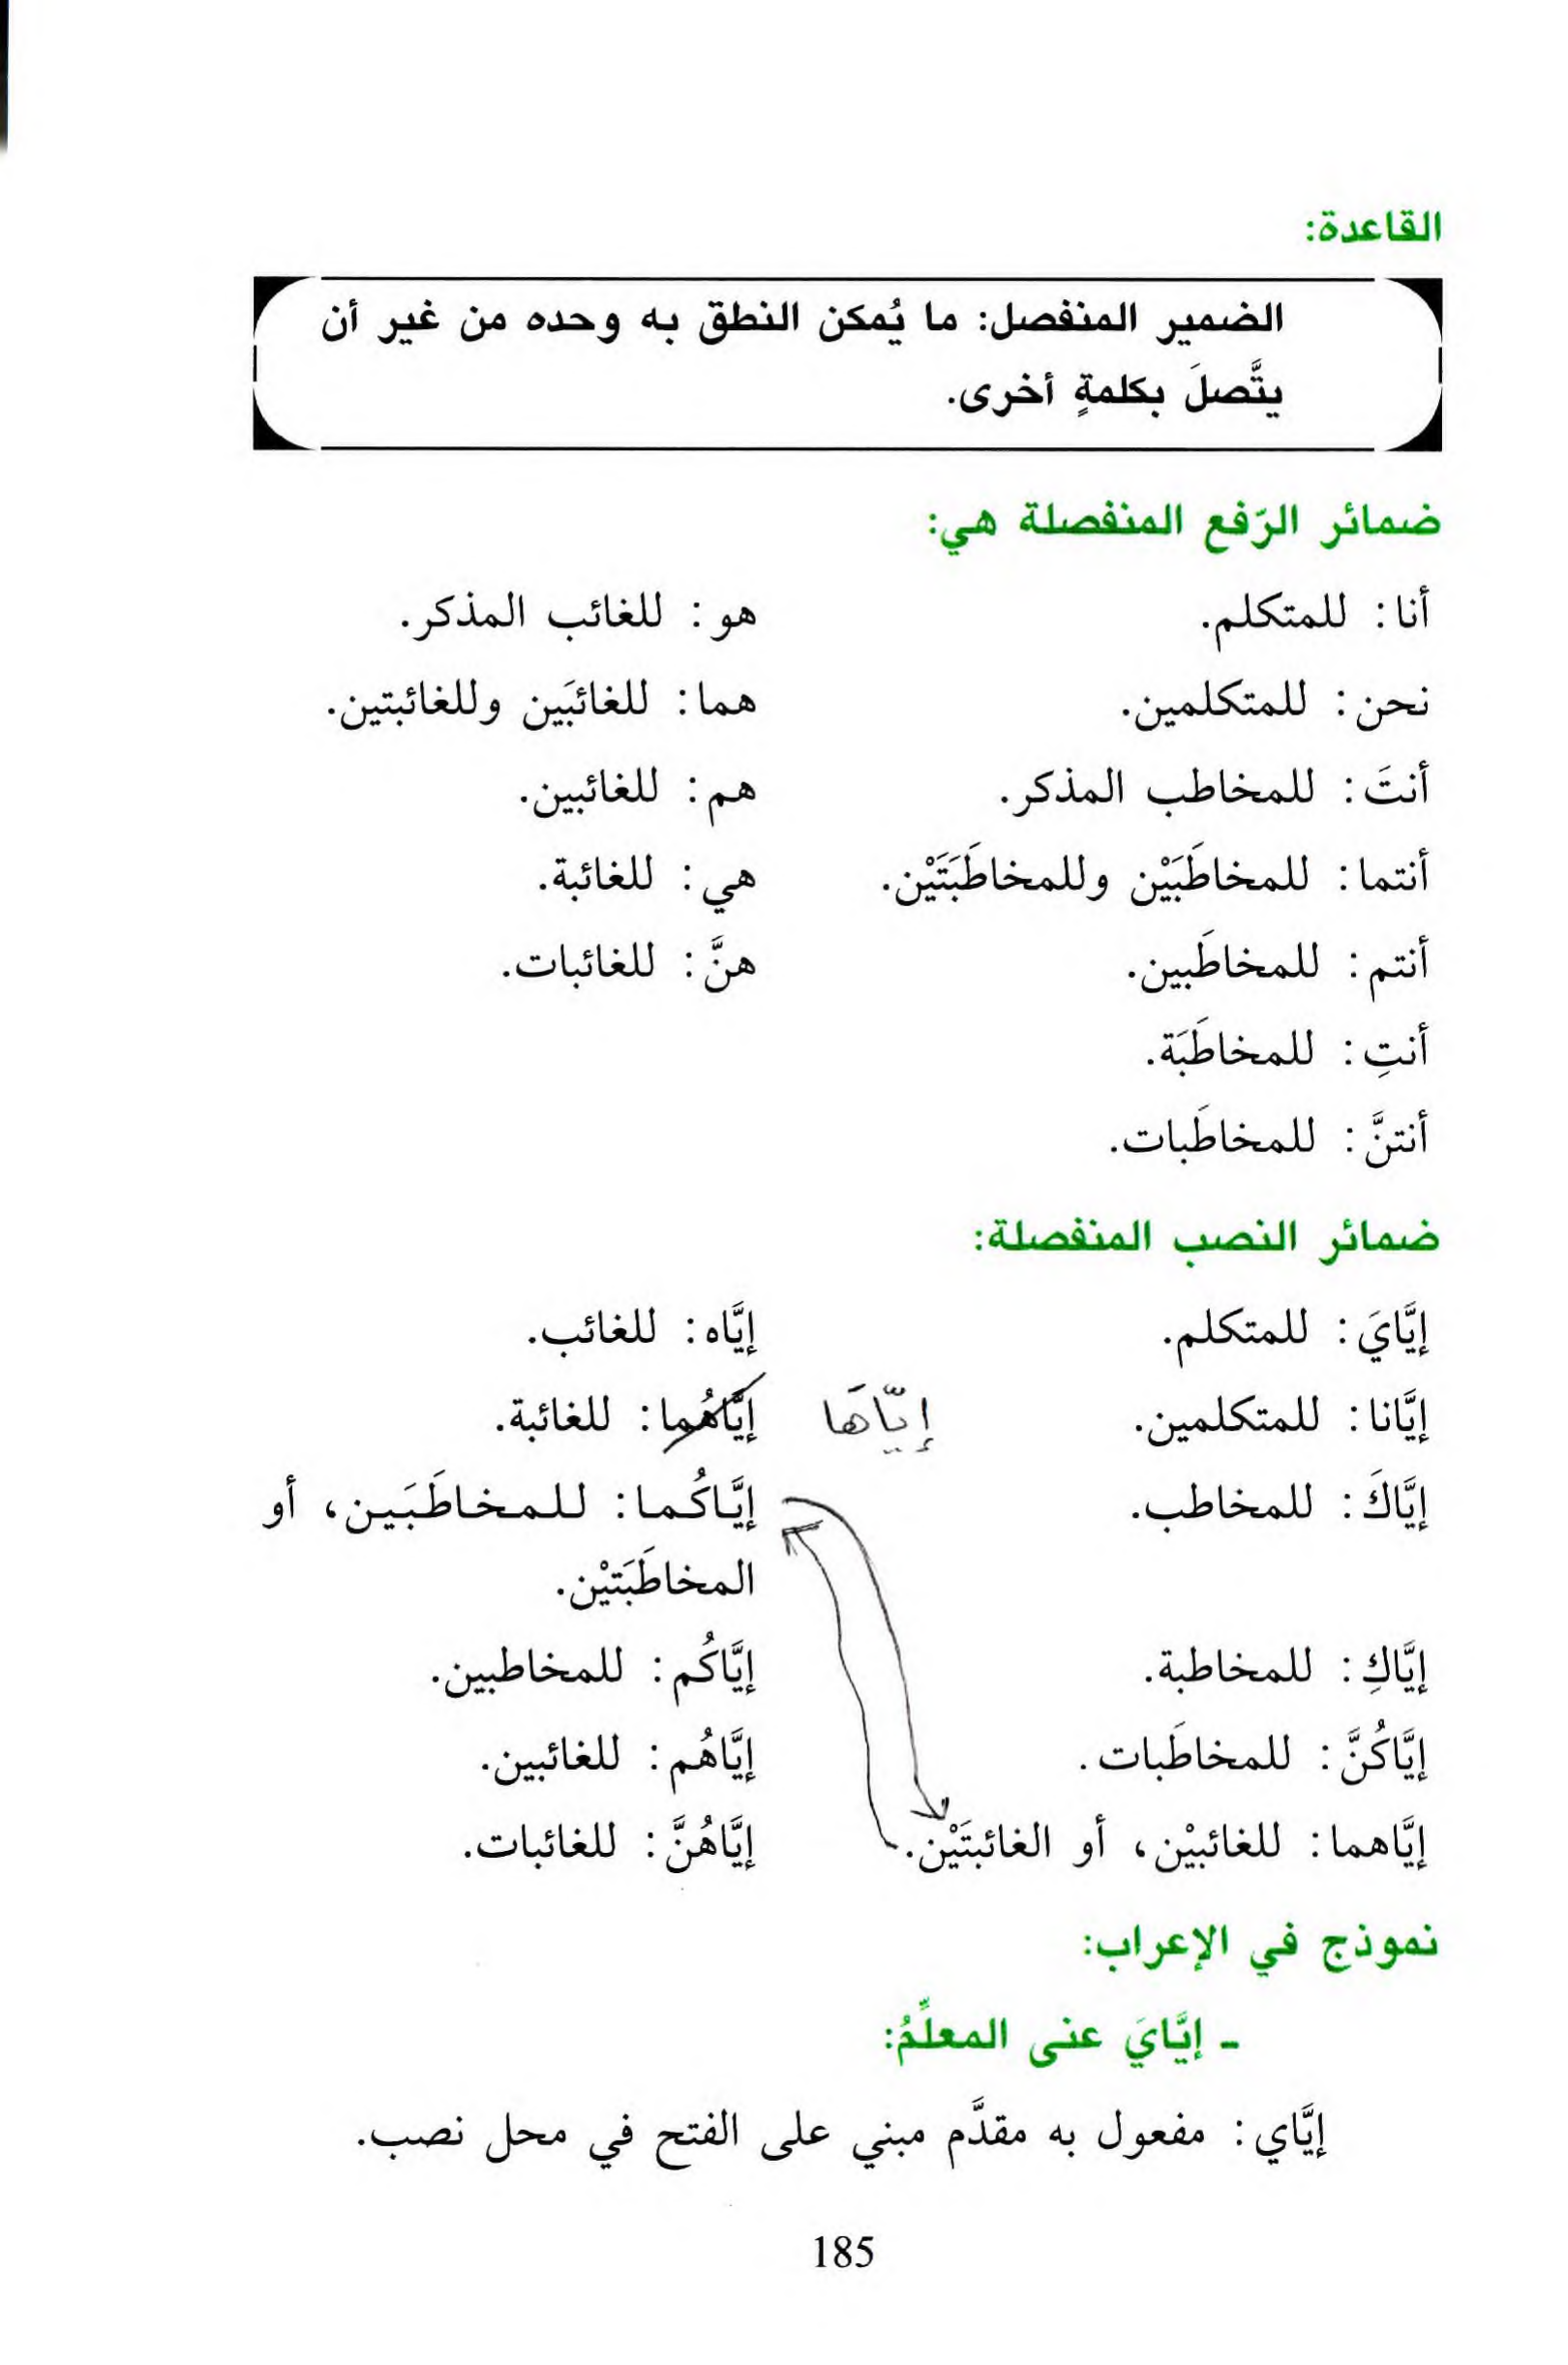 القاعدة:
الضمير المنفصل: ما يُمكن النطق به وحده من غير أن
يتَّصلَ بكلمةٍ أخرى.
ضمائر الرّفع المنفصلة هي:
أنا: للمتكلم.
نحن: للمتكلمين.
أنتَ: للمخاطب المذكر.
أنتما: للمخاطَبَيْن وللمخاطَبَتَيْن.
أنتم: للمخاطَبين.
أنتِ: للمخاطَبَة.
أنتنَّ: للمخاطَبات.
هو: للغائب المذكر.
هما: للغائبَين وللغائبتين.
هم: للغائبين.
هي: للغائبة.
هنَّ: للغائبات.
ضمائر النصب المنفصلة:
إيَّايَ: للمتكلم.
إيَّانا: للمتكلمين.
إيَّاكَ: للمخاطب.
إيَّاكِ: للمخاطبة.
إيَّاكُنَّ: للمخاطَبات.
إيَّاهما: للغائبيْن، أو الغائبتَيْن.
إيَّاه: للغائب.
إيَّاهُما: للغائبة.
إيّاهَا
إيَّاكُما: للمخاطَبَين، أو
المخاطَبَتيْن.
إيَّاكُم: للمخاطبين.
إيَّاهُم: للغائبين.
إيَّاهُنَّ: للغائبات.
نموذج في الإعراب:
- إيَّايَ عنى المعلِّمُ:
إيَّاي: مفعول به مقدَّم مبني على الفتح في محل نصب.
185